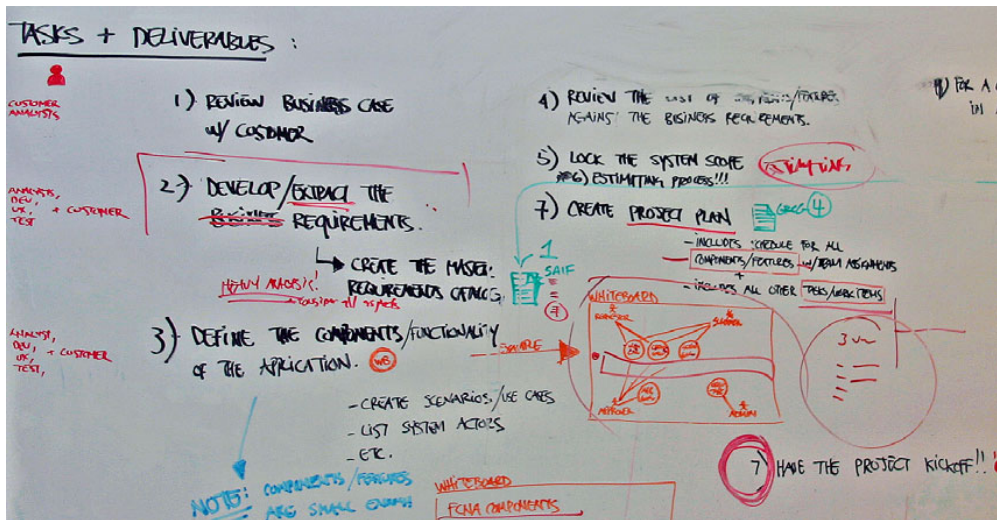 TASKS + DELIVERABLES :
CUSTOMER
ANALYSTS
1) REVIEW BUSINESS CASE
W/ CUSTOMER
ANALYSTS,
DEV,
UX, + CUSTOMER
TEST
2) DEVELOP/EXTRACT THE
BUSINESS REQUIREMENTS.
CREATE THE MASTER
REQUIREMENTS CATALOG.
HEAVY ANALYSIS!
ANALYST,
DEV,
UX, + CUSTOMER
TEST,
3) DEFINE THE COMPONENTS/FUNCTIONALITY
OF THE APPLICATION. WB
- CREATE SCENARIOS/USE CASES
- LIST SYSTEM ACTORS
- ETC.
NOTE: COMPONENTS/FEATURES
ARE SMALL ENOUGH
WHITEBOARD
FCNA COMPONENTS
4) REVIEW THE LIST OF /FEATURES
AGAINST THE BUSINESS REQUIREMENTS.
5) LOCK THE SYSTEM SCOPE
ESTIMATING
6) ESTIMATING PROCESS!!!
7) CREATE PROJECT PLAN
GREG 4
- INCLUDES SCHEDULE FOR ALL
COMPONENTS/FEATURES W/TEAM ASSIGNMENTS
+
- INCLUDES ALL OTHER TASKS/WORK ITEMS
1
SAIF
7
SAMPLE
WHITEBOARD
APPROVER
ADMIN
3
7 HAVE THE PROJECT KICKOFF!!
FOR A
IN